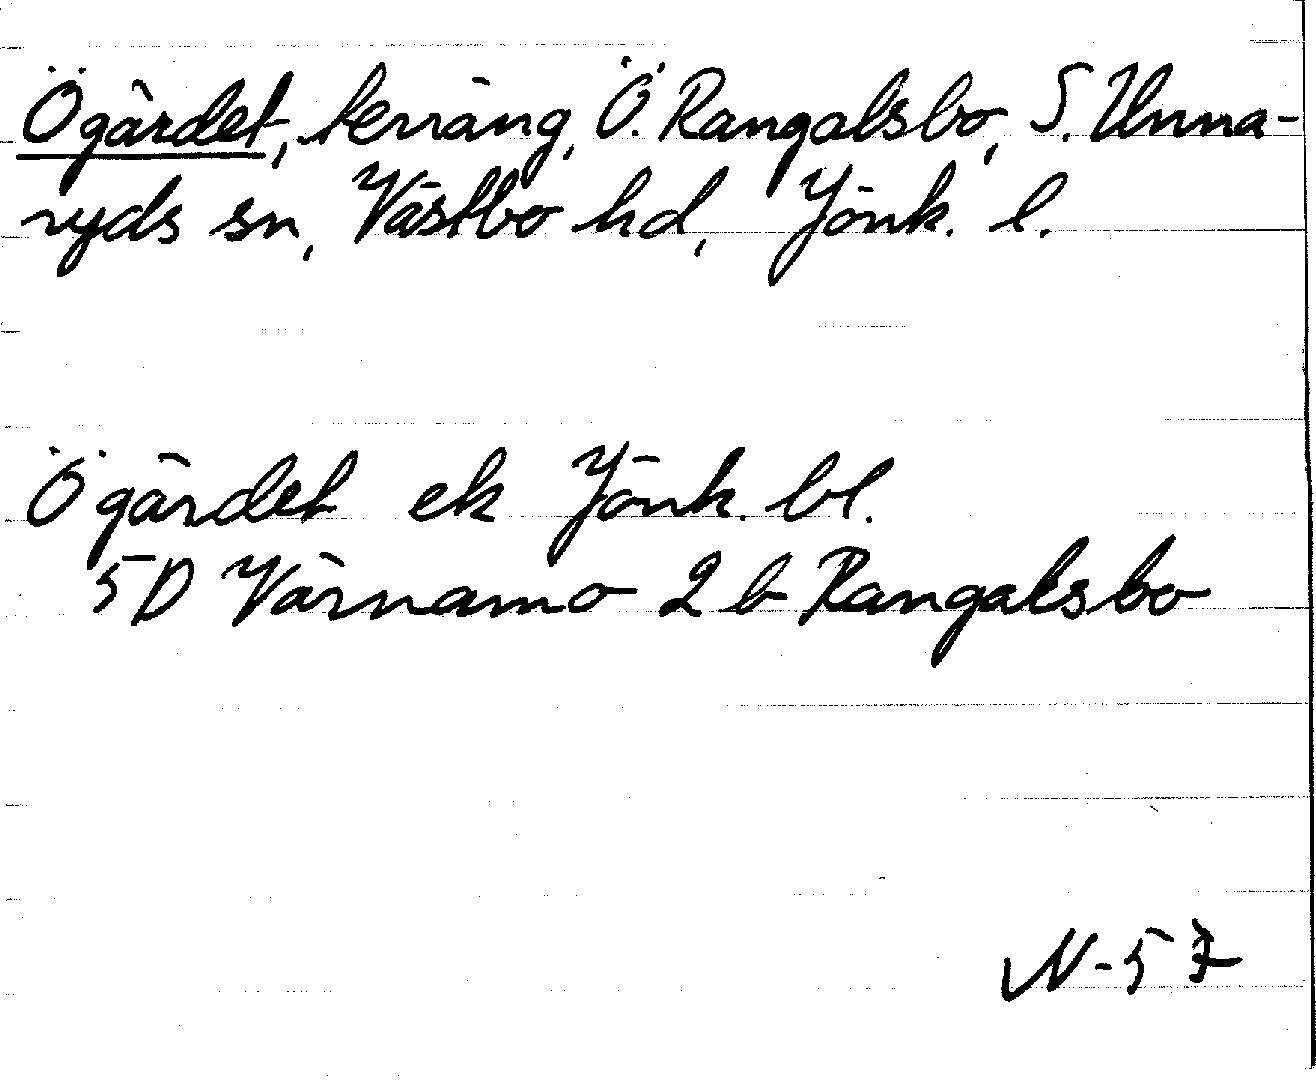 Ögärdet, terräng, Ö. Rangalsbo, S. Unna-
ryds sn, Västbo hd, Jönk. l.
Ögärdet ek Jönk. bl.
5D Värnamo 2 b Rangalsbo
N-57